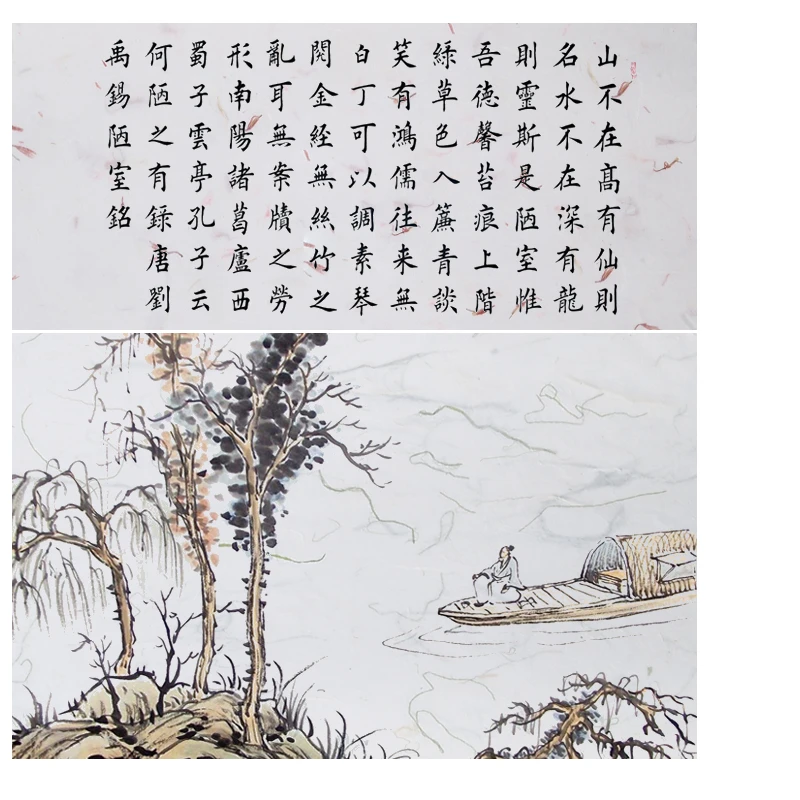 山不在髙有仙則
名水不在深有龍
則靈斯是陋室惟
吾德馨苔痕上階
緑草色入簾青談
笑有鴻儒往来無
白丁可以調素琴
閱金経無絲竹之
亂耳無案牘之勞
形南陽諸葛廬西
蜀子雲亭孔子云
何陋之有錄唐劉
禹錫陋室銘